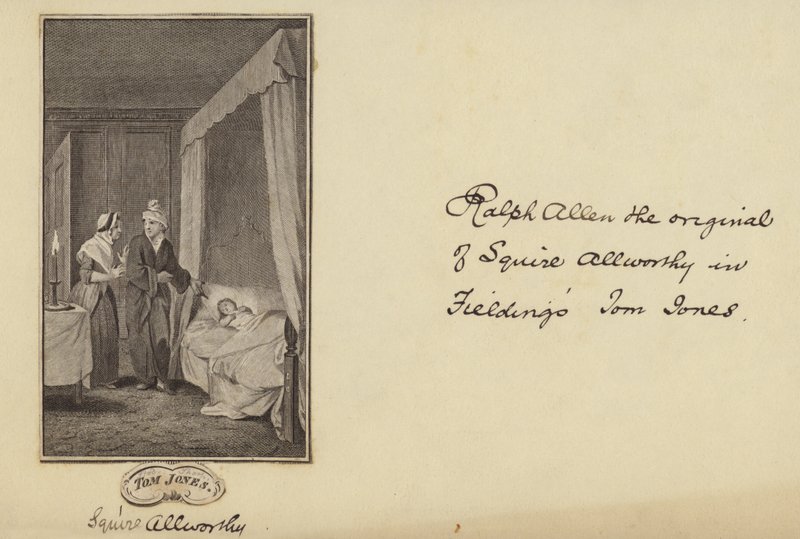 TOM JONES.
Squire Allworthy
Ralph Allen the original
of Squire Allworthy in
Fielding's Tom Jones.